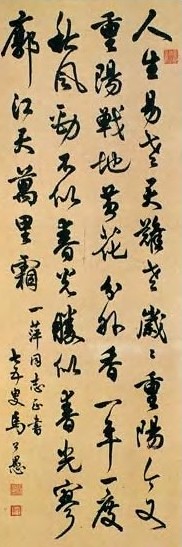 人生易老天難老歲〻重陽今又
重陽戰地黃花分外香一年一度
秋風勁不似春光勝似春光寥
廓江天萬里霜
一萍同志正書
七五叟馬公愚